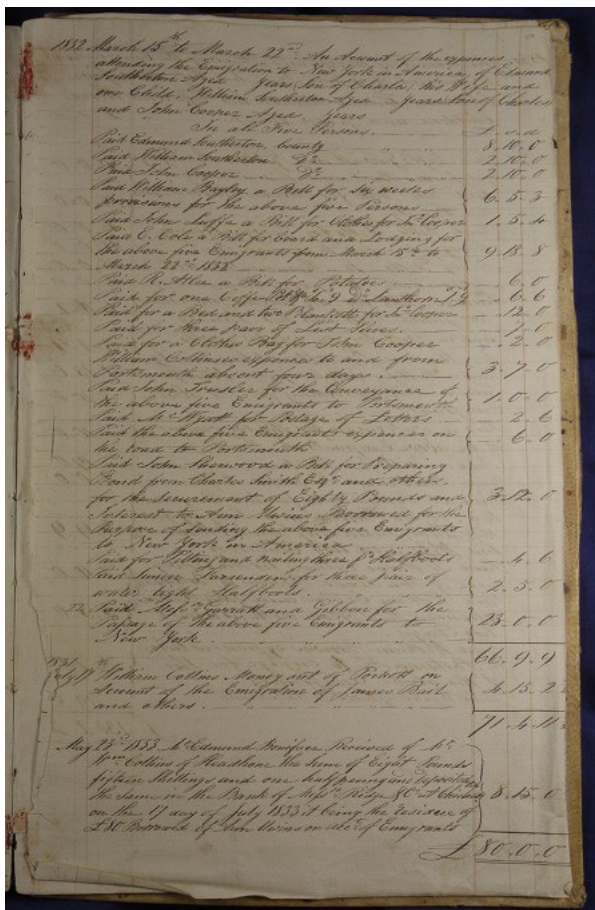 1832 March 15th to March 22nd An Account of the expences
attending the Emigration to New York in America, of Edmund
Southerton Aged Years, Son of Charles, his Wife and
one Child; William Southerton Aged Years Son of Charles
and John Cooper Aged Years
In all Five Persons. £. s. d
Paid Edmund Southerton, County 8.10.0
Paid William Southerton Do 2.10.0
Paid John Cooper Do 2.10.0
Paid William Bayley a Bill for Six weeks
provisions for the above five Persons 6.5.3
Paid John Luffe a Bill for Clothes for Jno Cooper 1.5.4
Paid E. Cole a Bill for board and Lodging for
the above five Emigrants from March 15th to 9.18.8
March 22nd 1832
Paid R. Allee a Bill for Potatoes 6.0
Paid for one Coffe Pot & Lanthorn 6.6
Paid for a Bed and two Blankets for Jno Cooper 12.0
Paid for three pair of Last 1.0
Paid for a Clothes Bag for John Cooper 2.0
William Collinses expences to and from
Portsmouth absent four days. 3.7.0
Paid John Trusler for the Conveyance of
the above five Emigrants to Portsmouth 1.0.0
Paid Mr Wyatt for Postage of Letters 2.6
Paid the above five Emigrants expences on 6.0
the road to Portsmouth
Paid John Sherwood a Bill for Preparing
Bond from Charles Smith Esqr and others
for the Securement of Eighty Pounds and 3.12.0
Interest to Ann Unwins Borrowed for the
Purpose of Sending the above five Emigrants
to New York in America
Paid for Tiping and nailing three pr Halfboots 4.6
Paid Simon for three pair of
water tight Halfboots. 2.5.0
22 Paid Messrs Garratt and Gibbon for the
Passage of the above five Emigrants to 23.0.0
New York
66.9.9
1831
July 17th William Collins Money out of Pockett on
Account of the Emigration of James Budd 4.15.2
and others.
71.4.11
May 23rd 1833 Mr Edmund Boniface Received of Mr
Wm Collins of Headhone the Sume of Eight Pounds
fifteen Shillings and one halfpenny and deposited
the same in the Bank of Messrs Ridge & Co at 8.15.0
on the 17 day of July 1833 it being the residue of
£80 Borrowed of Ann Unwins on acct of Emigrants
£80.0.0